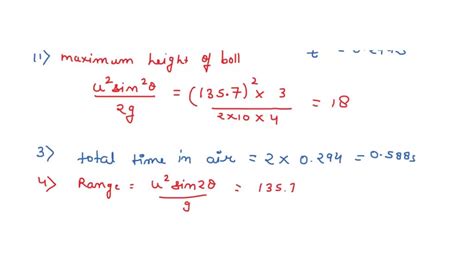 11) maximum height of ball
u²sin²θ / 2g = (135.7)² × 3 / 2×10×4 = 18
3) total time in air = 2 × 0.294 = 0.588s
4) Range = u²sin2θ / g = 135.7